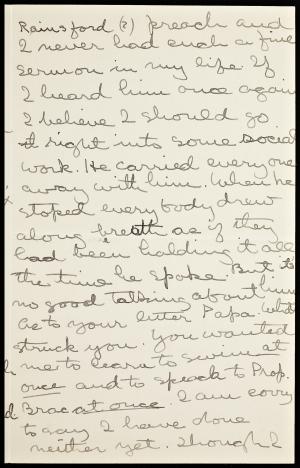 Rainsford (?) preach and
I never had such a fine
sermon in my life. If
I heard him once again
I believe I should go
right into some social
work. He carried everyone
away with him. When he
stoped everybody drew
along breath as if they
had been holding it all
the time he spoke. But it's
no good talking about him
as to your letter Papa. What
struck you. You wanted
me to learn to swim at
once and to speak to Prof.
Brac at once. I am sorry
to say I have done
neither yet. Though I